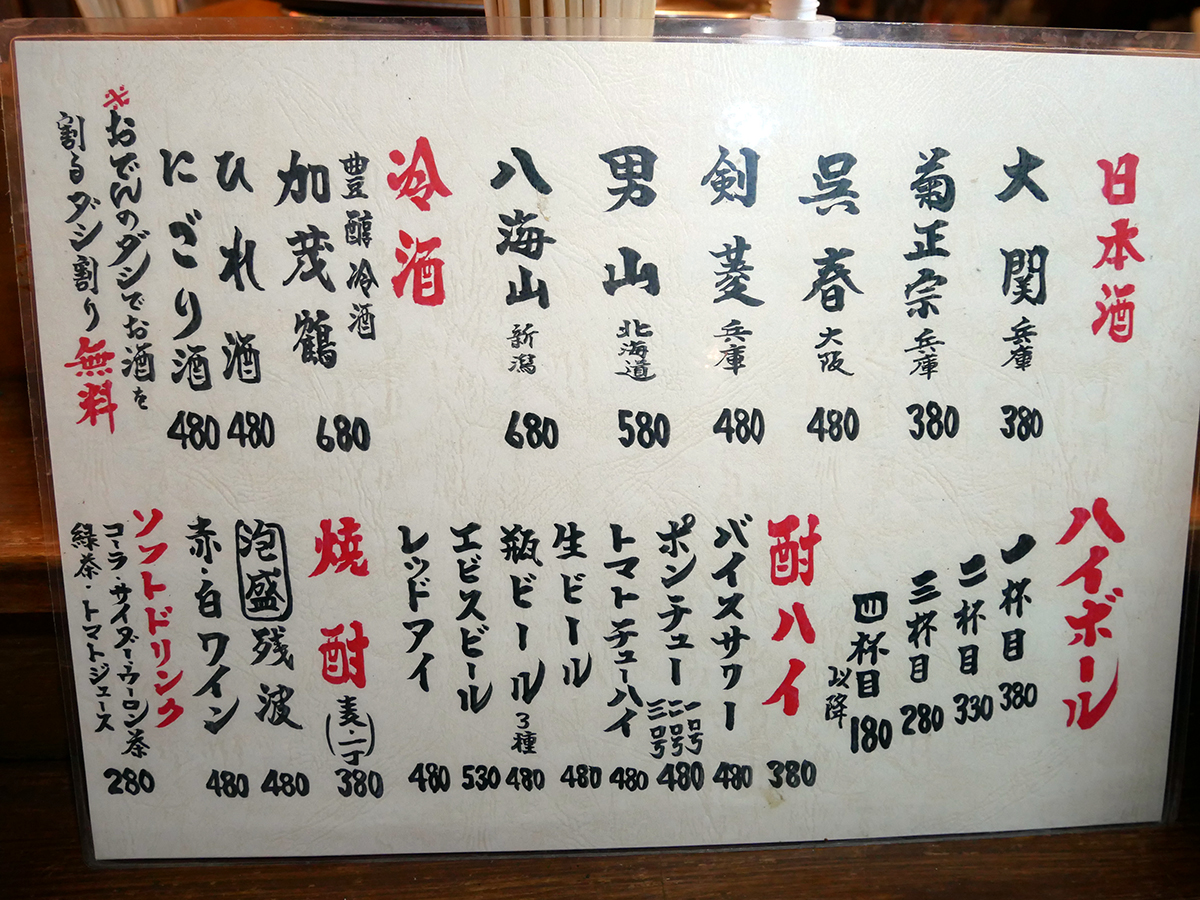 日本酒
大関 兵庫 380
菊正宗 兵庫 380
呉春 大阪 480
剣菱 兵庫 480
男山 北海道 580
八海山 新潟 680
冷酒
豊醇冷酒
加茂鶴 680
ひれ酒 480
にごり酒 480
※おでんのダシでお酒を
割るダシ割り無料
ハイボール
一杯目 380
二杯目 330
三杯目 280
四杯目以降 180
酎ハイ 380
バイスサワー 480
ポンチュー 一〇号 二〇号 三〇号 480
トマトチューハイ 480
生ビール 480
瓶ビール 3種 480
エビスビール 530
レッドアイ 480
焼酎 麦・(二丁) 380
泡盛 残波 480
赤・白ワイン 480
ソフトドリンク
コーラ・サイダー・ウーロン茶
緑茶・トマトジュース 280